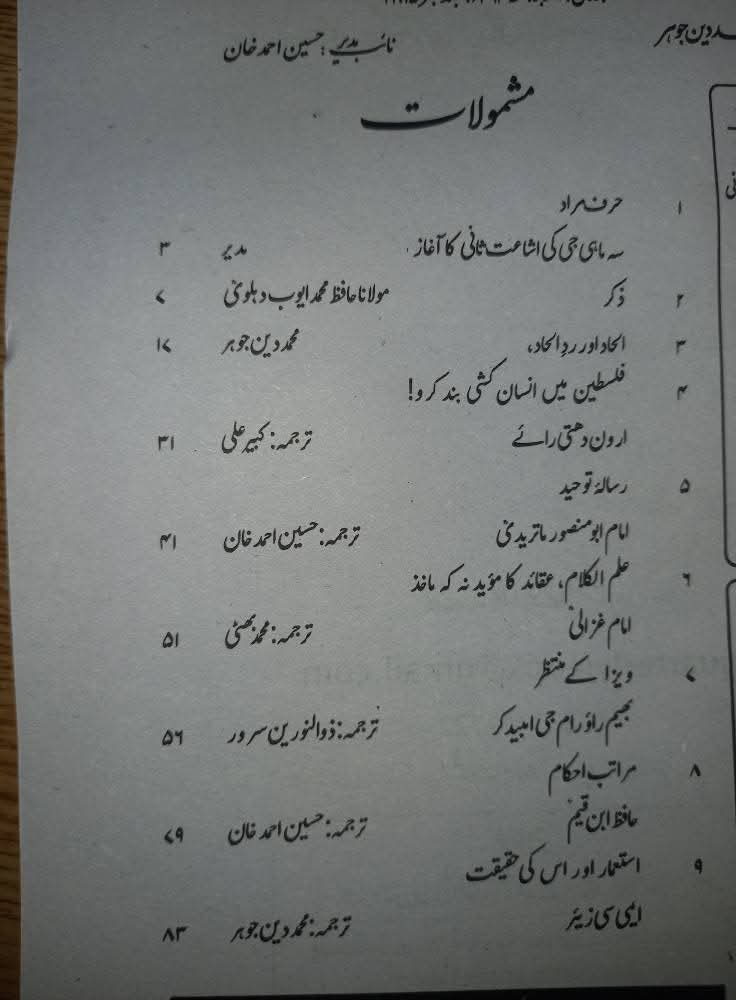 دین جوہر
نائب مدیر: حسین احمد خان
مشمولات
۱ حرفِ مراد
سہ ماہی جی کی اشاعت ثانی کا آغاز مدیر ۳
۲ ذکر مولانا حافظ محمد ایوب دہلویؒ ۷
۳ الحاد اور ردِ الحاد، محمد دین جوہر ۱۷
۴ فلسطین میں انسان کشی بند کرو!
ارون دھتی رائے ترجمہ: کبیر علی ۳۱
۵ رسالۂ توحید
امام ابو منصور ماتریدیؒ ترجمہ: حسین احمد خان ۴۱
۶ علم الکلام، عقائد کا مؤید نہ کہ ماخذ
امام غزالیؒ ترجمہ: محمد بھٹی ۵۱
۷ ویزا کے منتظر
بھیم راؤ رام جی امبیدکر ترجمہ: ذوالنورین سرور ۵۶
۸ مراتب احکام
حافظ ابن قیمؒ ترجمہ: حسین احمد خان ۷۹
۹ استعمار اور اس کی حقیقت
ایمی سی زیئر ترجمہ: محمد دین جوہر ۸۳